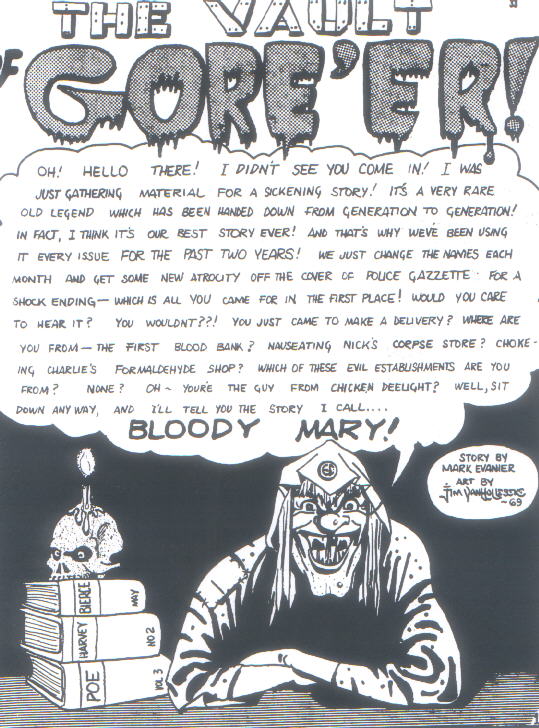 THE VAULT
OF GORE'ER!
OH! HELLO THERE! I DIDN'T SEE YOU COME IN! I WAS
JUST GATHERING MATERIAL FOR A SICKENING STORY! IT'S A VERY RARE
OLD LEGEND WHICH HAS BEEN HANDED DOWN FROM GENERATION TO GENERATION!
IN FACT, I THINK IT'S OUR BEST STORY EVER! AND THAT'S WHY WE'VE BEEN USING
IT EVERY ISSUE FOR THE PAST TWO YEARS! WE JUST CHANGE THE NAMES EACH
MONTH AND GET SOME NEW ATROCITY OFF THE COVER OF POLICE GAZZETTE FOR A
SHOCK ENDING— WHICH IS ALL YOU CAME FOR IN THE FIRST PLACE! WOULD YOU CARE
TO HEAR IT? YOU WOULDNT??! YOU JUST CAME TO MAKE A DELIVERY? WHERE ARE
YOU FROM— THE FIRST BLOOD BANK? NAUSEATING NICK'S CORPSE STORE? CHOKE-
ING CHARLIE'S FORMALDEHYDE SHOP? WHICH OF THESE EVIL ESTABLISHMENTS ARE YOU
FROM? NONE? OH ~ YOU'RE THE GUY FROM CHICKEN DEELIGHT? WELL, SIT
DOWN ANY WAY, AND I'LL TELL YOU THE STORY I CALL....
BLOODY MARY!
STORY BY
MARK EVANIER
ART BY
~69
BIERCE MAY
HARVEY NO 2
POE VOL 3